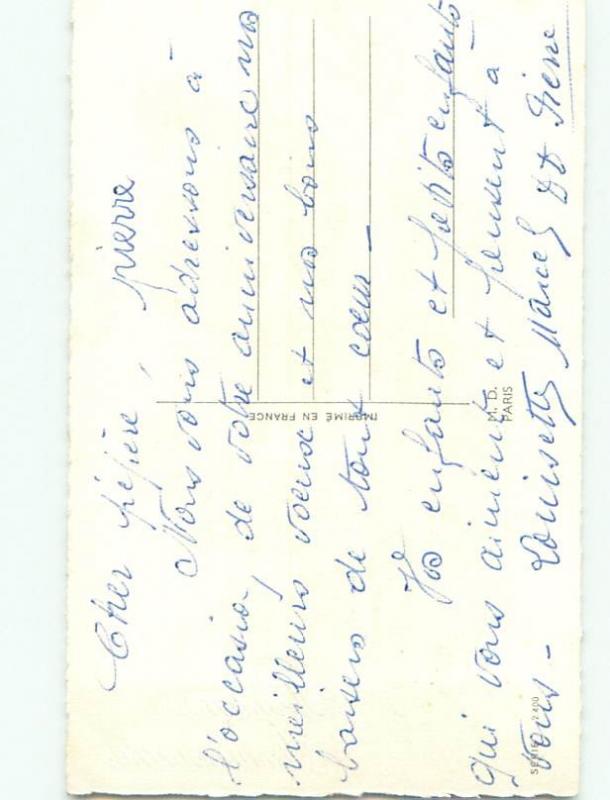 Cher pépère, pierre
Nous vous adressons à
l'occasion, de votre anniversaire nos
meilleurs voeux et nos bons
baisers de tout coeur —
Vos enfants et petits enfants
qui vous aiment et pensent à
vous — Louisette Marcel et Pierre
IMPRIMÉ EN FRANCE
M. D.
PARIS